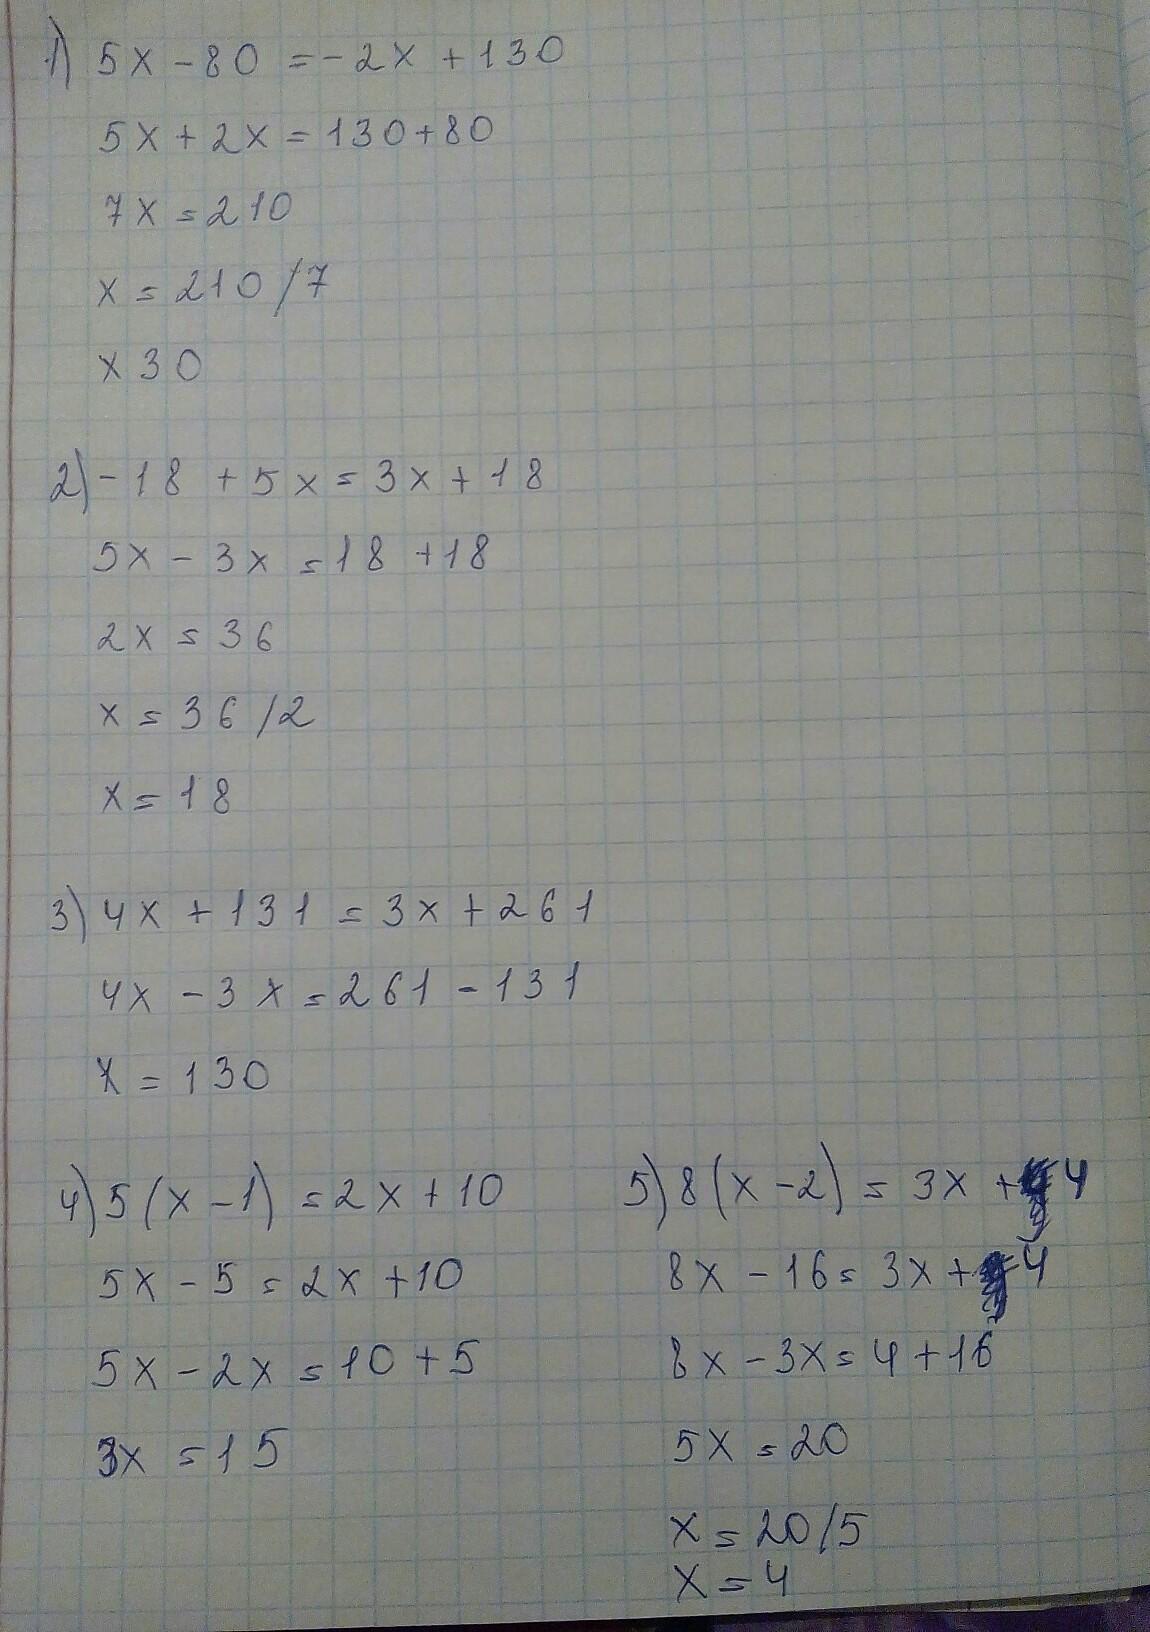 1) 5x - 80 = -2x + 130
5x + 2x = 130 + 80
7x = 210
x = 210 / 7
x 30
2) -18 + 5x = 3x + 18
5x - 3x = 18 + 18
2x = 36
x = 36 / 2
x = 18
3) 4x + 131 = 3x + 261
4x - 3x = 261 - 131
x = 130
4) 5(x - 1) = 2x + 10
5x - 5 = 2x + 10
5x - 2x = 10 + 5
3x = 15
5) 8(x - 2) = 3x + 4
8x - 16 = 3x + 4
8x - 3x = 4 + 16
5x = 20
x = 20/5
x = 4